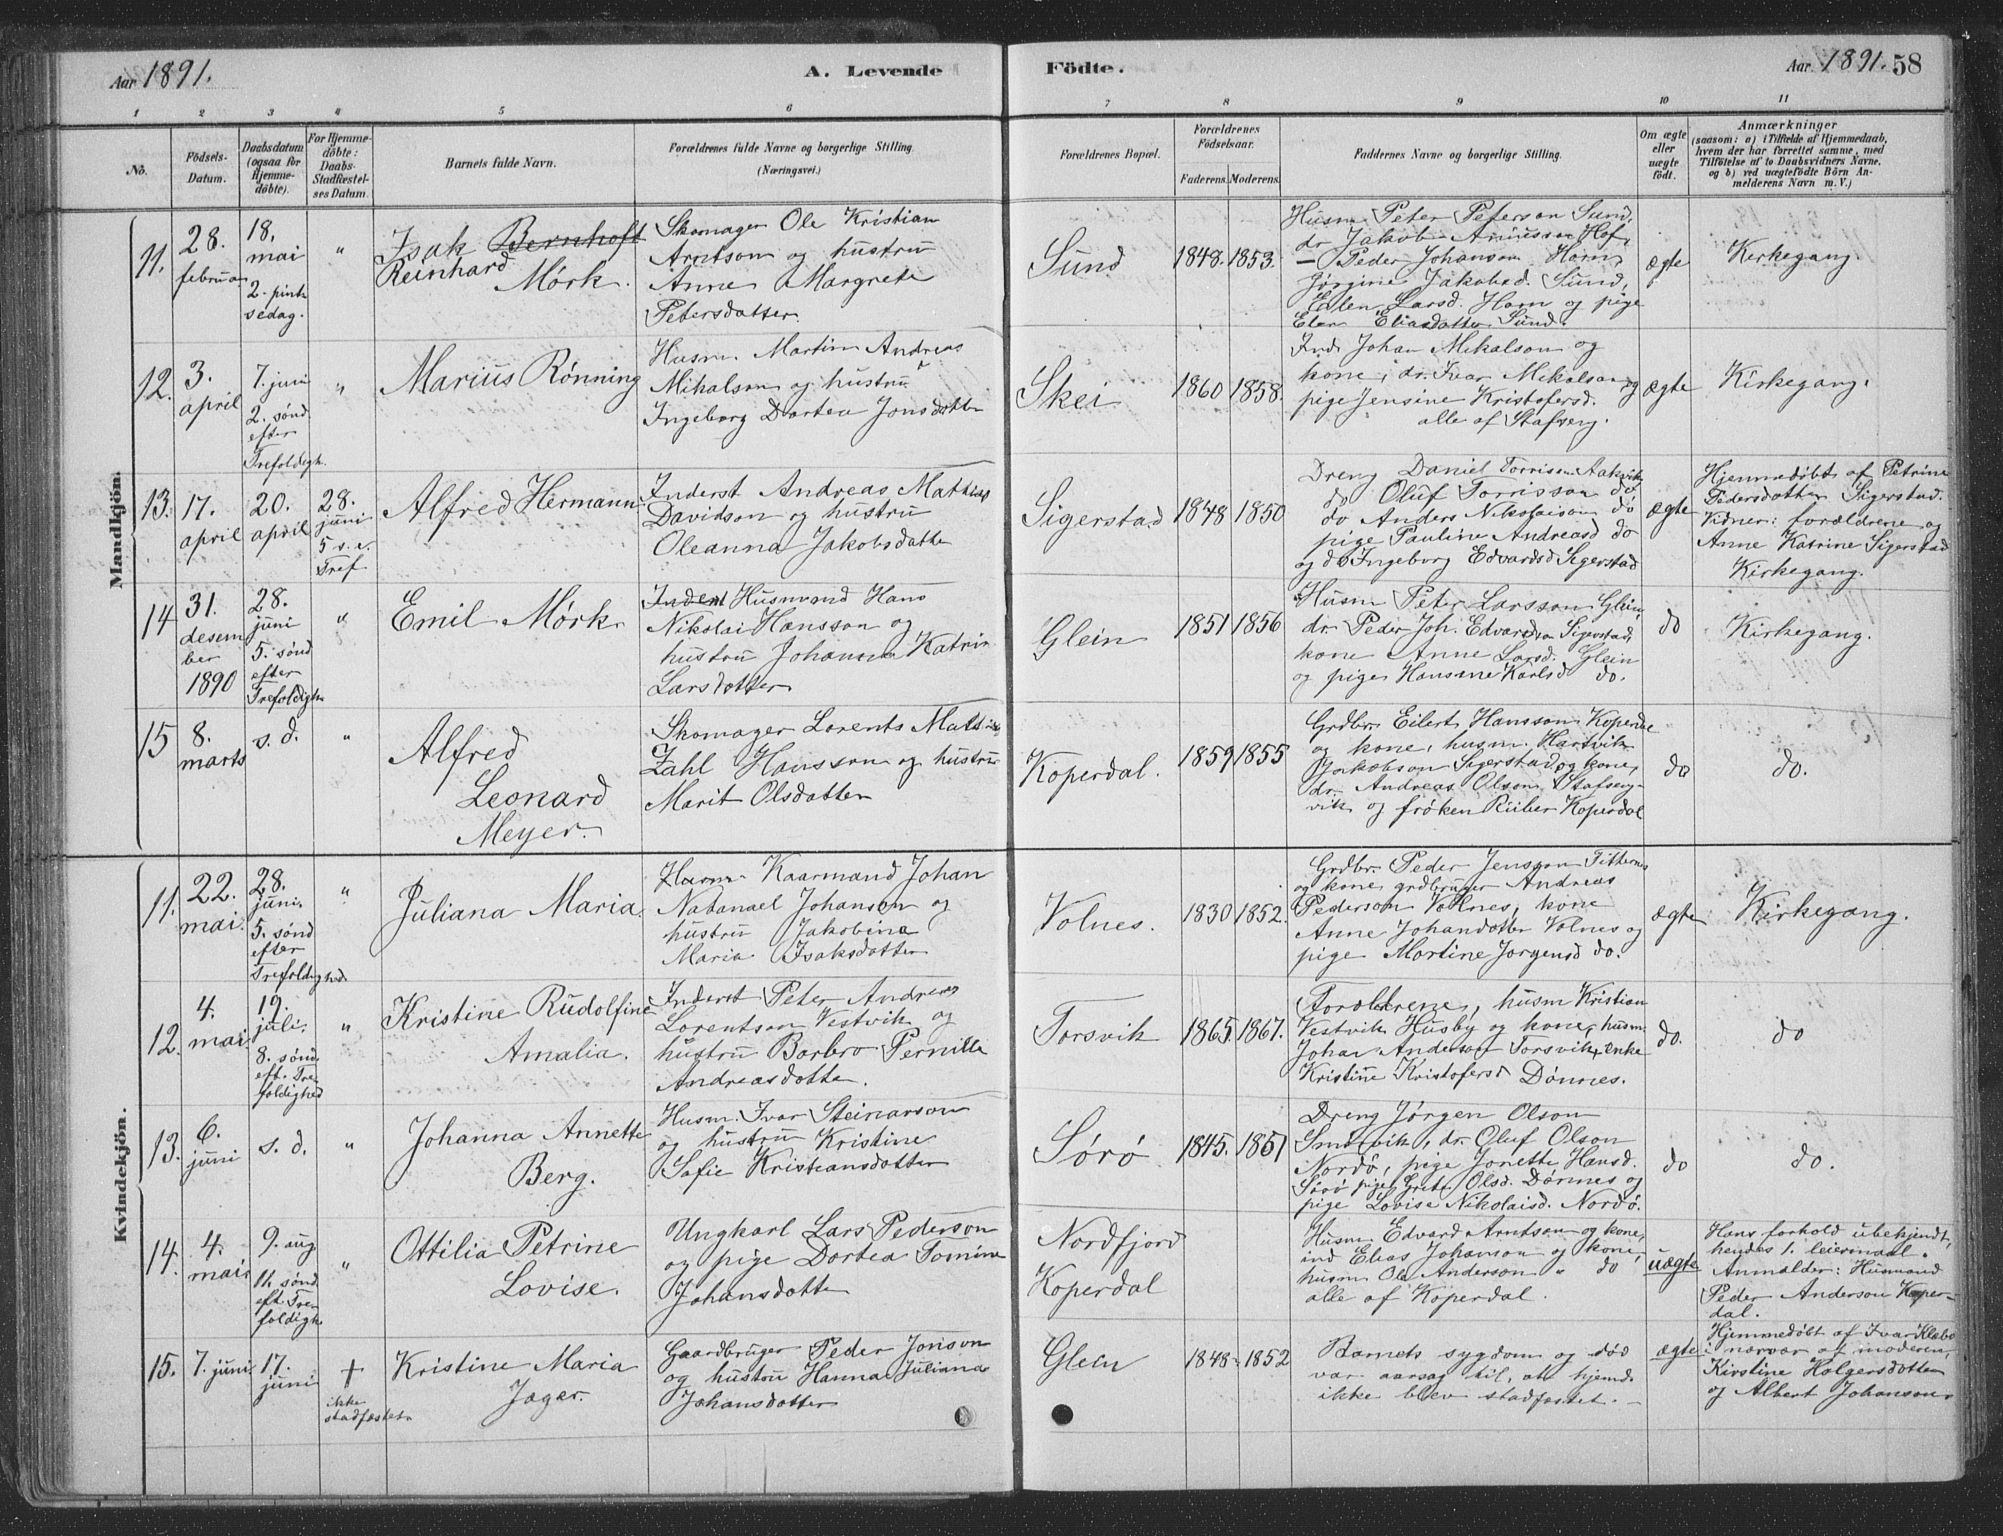 Aar 1891.
A. Levende
Födte.
Aar 1891. 58
1 2 3 4 5 6 7 8 9 10 11
No.
Födsels-
Datum.
Daabsdatum
(ogsaa for
Hjemme-
døbte).
For Hjemme-
døbte:
Daabs-
Stadfæstel-
ses Datum.
Barnets fulde Navn.
Forældrenes fulde Navne og borgerlige Stilling
(Næringsvei.)
Forældrenes Bopæl.
Forældrenes
Födselsaar.
Faderens. Moderens.
Faddernes Navne og borgerlige Stilling.
Om ægte
eller
uægte
födt.
Anmærkninger
(saasom: a) i Tilfælde af Hjemmedaab,
hvem der har forrettet samme, med
Tilföielse af to Daabsvidners Navne,
og b) ved uægtefödte Börn An-
melderens Navn m. V.)
Mandkjön.
11.
28.
februar
18.
mai
2. pints
sedag.
"
Isak Bernhoft
Reinhard
Mørk.
Skomager Ole Kristian
Arntson og hustru
Anne Margrete
Petersdatter.
Sund
1848. 1853.
Husm Peter Peterson Sund,
dr Jakob Hof,
– Peder Johanson Horn
Jørgine Jakobsd. Sund,
Elen Larsd. Horn og pige
Elen Eliasdatter Sund.
ægte
Kirkegang.
12.
3.
april
7. juni
2. sønd.
efter
Trefoldigh.
"
Marius Rønning
Husm. Martin Andreas
Mikalson og hustru
Ingeborg Dortea Jonsdatter
Skei
1860 1858.
Ind. Johan Mikalson og
kone, dr. Ivar Mikalson og
pige Jensine Kristofersd.
alle af Stafseng.
ægte
Kirkegang.
13.
17.
april
20.
april
28.
juni
5 s. e.
Tref
Alfred Hermann
Inderst Andreas Mathias
Davidson og hustru
Oleanna Jakobsdatter
Sigerstad
1848 1850
Dreng Daniel Torrisson Aakvik
do Oluf Torrisson do
do Anders Nikolaison do
pige Pauline Andreasd do
og do Ingeborg Edvardsd Sigerstad
ægte
Hjemmedøbt af Petrine
Pedersdatter Sigerstad.
Vidner: forældrene og
Anne Katrine Sigerstad
Kirkegang.
14
31.
desem
ber
1890
28.
juni
5. sønd
efter
Trefoldigh.
"
Emil Mørk.
Inderst Husmand Hans
Nikolai Hansson og
hustru Johanna Katrin
Larsdatter
Glein
1851 1856
Husm Peter Larsson Glein,
dr. Peder Joh. Edvardson Sigerstad,
kone Anne Larsd. Glein
og pige Hansine Karlsd do.
do
Kirkegang.
15
8.
marts
s. d.
"
Alfred
Leonard
Meyer.
Skomager Lorents Mathias
Zahl Hansson og hustru
Marit Olsdatter
Koperdal.
1859 1855
Grdbr. Eilert Hansson Koperdal
og kone, husm. Hartvik
Jakobson Sigerstad og kone,
dr. Andreas Olson Stafseng-
vik og frøken Rüber Koperdal
do
do.
Kvindekjön.
11.
22.
mai.
28.
juni.
5. sønd
efter
Trefoldighed
"
Juliana Maria.
Husm. Kaarmand Johan
Natanael Johanson og
hustru Jakobina
Maria Isaksdatter
Volnes.
1830 1852.
Grdbr. Peder Jensson Titternes
og kone, grdbruger Andreas
Pederson Volnes, kone
Anne Johansdatter Volnes og
pige Martine Jørgensd do.
ægte
Kirkegang.
12.
4.
mai
19.
juli.
8. sønd.
eft. Tre-
foldighed
"
Kristine Rudolfine
Amalia.
Inderst Peter Andreas
Lorentson Vestvik og
hustru Barbro Pernille
Andreasdatter.
Torsvik
1865. 1867.
Forældrene, husm Kristian
Vestvik Husby og kone, husm.
Johan Anderson Torsvik, enke
Kristine Kristofersd Dønnes.
do.
do
13.
6.
juni
s. d.
"
Johanna Annette
Berg.
Husm. Ivar Steinarson
og hustru Kristine
Sofie Kristiansdatter
Sørø
1845. 1851
Dreng Jørgen Olson
Småvik, dr. Oluf Olson
Nordø, pige Jonette Hansd.
Sørø pige Grete Olsd. Dønnes og
pige Lovise Nikolaisd. Nordø.
do
do.
14.
4.
mai
9. aug.
11. sønd.
eft. Tre-
foldigh.
"
Ottilia Petrine
Lovise.
Ungkarl Lars Pederson
og pige Dortea Tomine
Johansdatter
Nordfjord
Koperdal
Husm. Edvard Arntson og kone,
ind Elias Johanson og kone,
husm Ole Anderson " do
alle af Koperdal.
uægte
Hans forhold ubekjendt,
hendes 1. leiermaal.
Anmelder: Husmand
Peder Anderson Koper-
dal.
15.
7. juni
17.
juni
†
ikke
stadfæstet
Kristine Maria
Jager.
Gaardbruger Peder Jonson
og hustru Hanna Juliana
Johansdatter
Glein
1848 1852
Barnets sygdom og død
var aarsag til, at hjemd.
ikke blev stadfæstet.
ægte
Hjemmedøbt af Ivar Klæbo
i nærvær af moderen,
Kirstine Holgersdatter
og Albert Johanson.